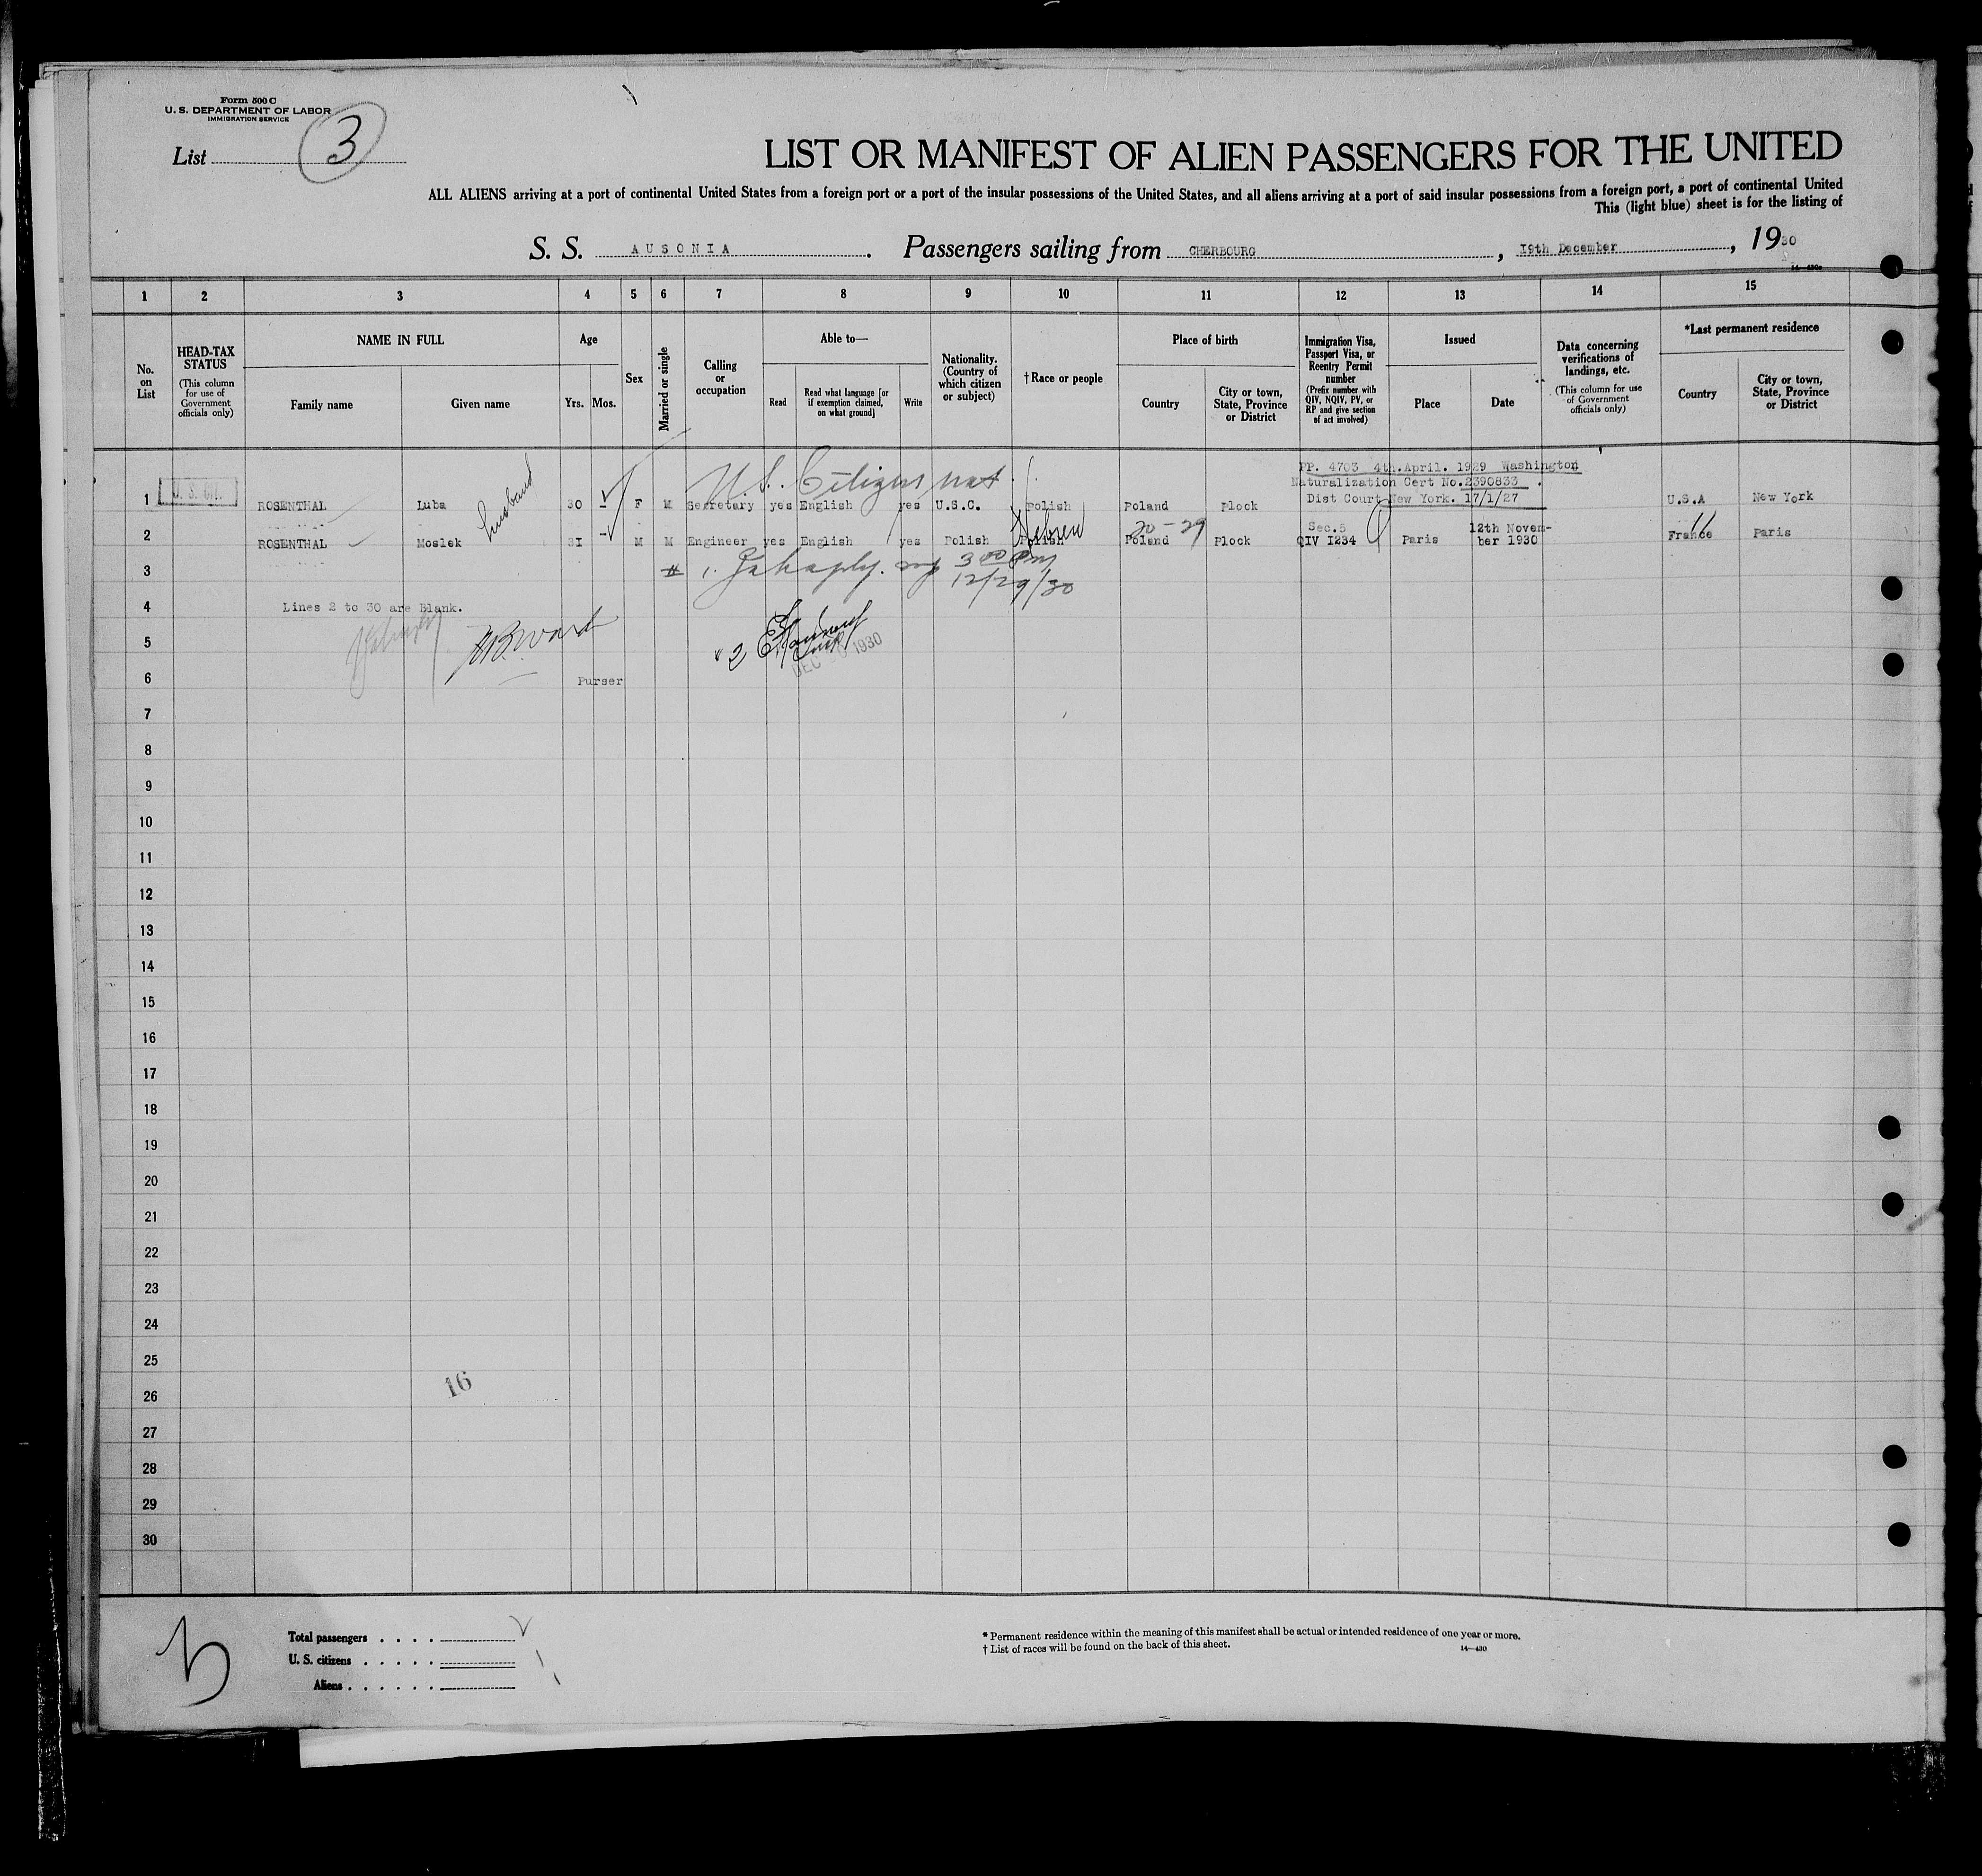 Form 500 C
U. S. DEPARTMENT OF LABOR
IMMIGRATION SERVICE
List 3
LIST OR MANIFEST OF ALIEN PASSENGERS FOR THE UNITED
ALL ALIENS arriving at a port of continental United States from a foreign port or a port of the insular possessions of the United States, and all aliens arriving at a port of said insular possessions from a foreign port, a port of continental United
This (light blue) sheet is for the listing of
S. S. AUSONIA. Passengers sailing from CHERBOURG, I9th December, 1930
14—430c
1 2 3 4 5 6 7 8 9 10 11 12 13 14 15
No. on List
HEAD-TAX STATUS (This column for use of Government officials only)
NAME IN FULL
Family name Given name
Age
Yrs. Mos.
Sex
Married or single
Calling or occupation
Able to—
Read Read what language [or if exemption claimed, on what ground] Write
Nationality. (Country of which citizen or subject)
†Race or people
Place of birth
Country City or town, State, Province or District
Immigration Visa, Passport Visa, or Reentry Permit number (Prefix number with QIV, NQIV, PV, or RP and give section of act involved)
Issued
Place Date
Data concerning verifications of landings, etc. (This column for use of Government officials only)
*Last permanent residence
Country City or town, State, Province or District
U.S. Citizen nat.
PP. 4703 4th.April. 1929 Washington
Naturalization Cert No.2390833 .
Dist Court New York. 17/1/27
1 ROSENTHAL Luba husband 30 - F M Secretary yes English yes U.S.C. Polish Poland Plock U.S.A New York
2 ROSENTHAL Moslek 3I - M M Engineer yes English yes Polish Polish Hebrew Poland Plock Sec.5 QIV I234 Paris 12th November 1930 France Paris
20-29
3 # 1. 3 00 pm
12/29/30
4 Lines 2 to 30 are Blank.
5 Ward
2
DEC 1930
6 Purser
7
8
9
10
11
12
13
14
15
16
17
18
19
20
21
22
23
24
25
26
16
27
28
29
30
3
Total passengers
U. S. citizens
Aliens
* Permanent residence within the meaning of this manifest shall be actual or intended residence of one year or more.
† List of races will be found on the back of this sheet.
14—430